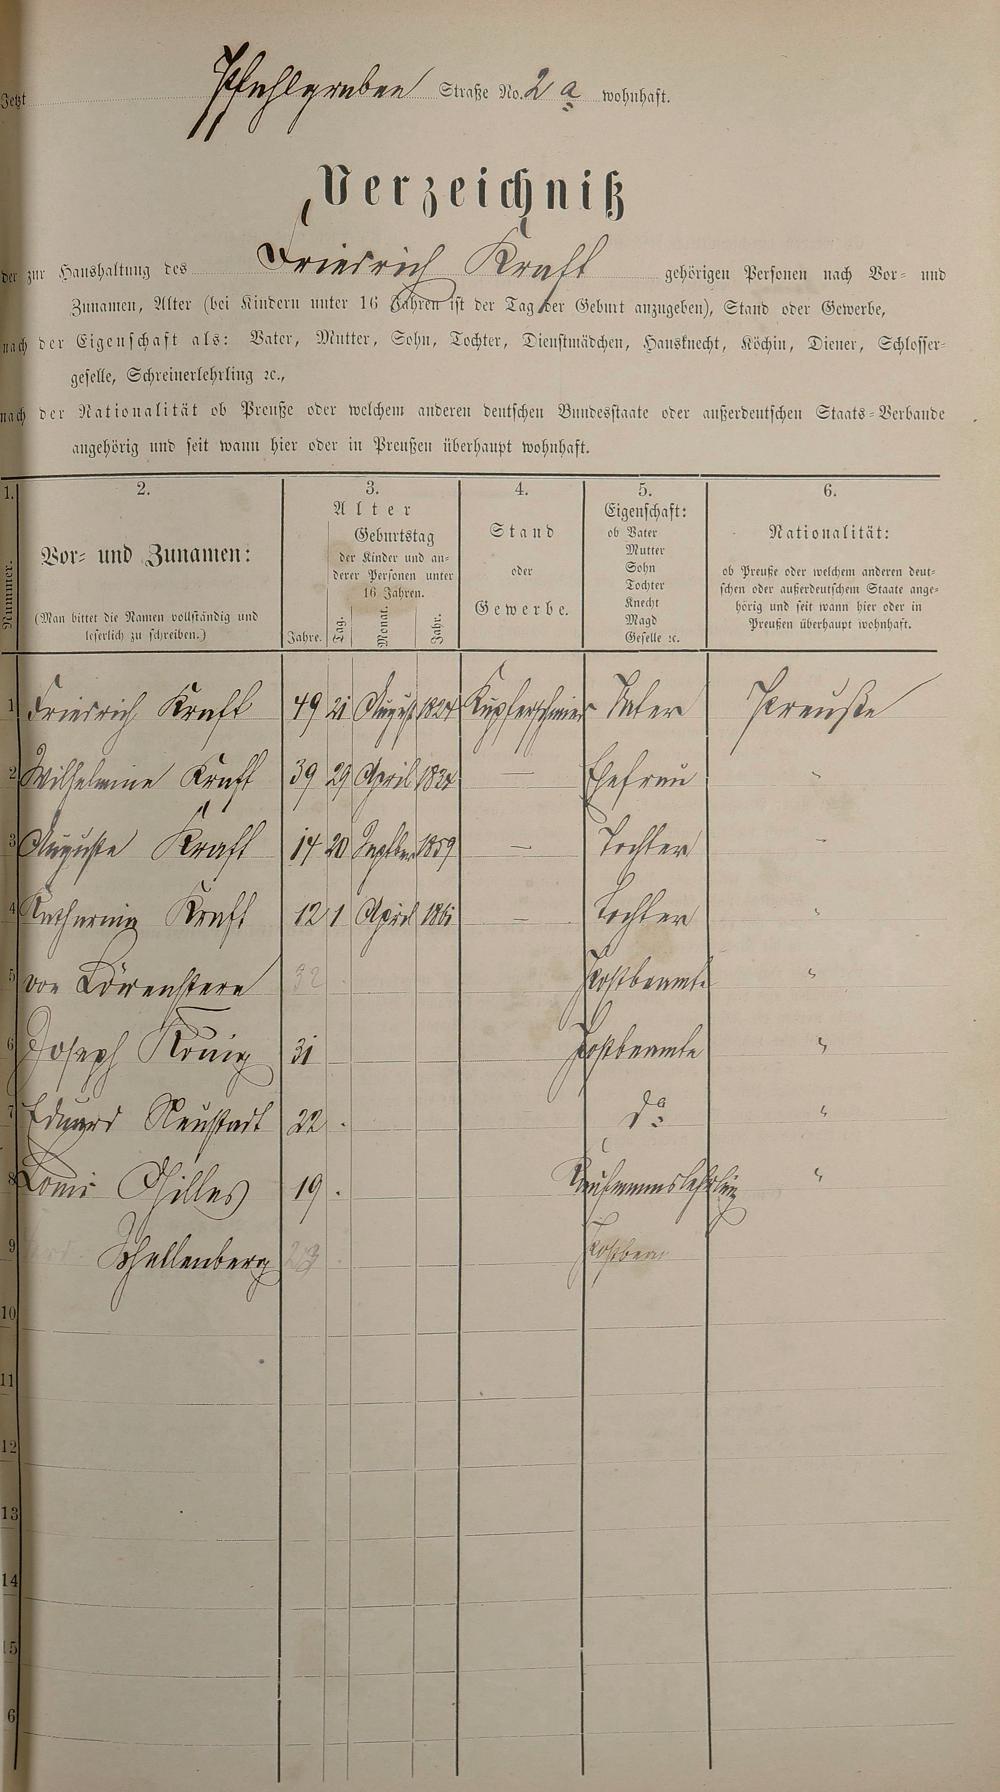 Jetzt Pfuhlgraben Straße No. 2 a wohnhaft.
Verzeichniß
der zur Haushaltung des Friedrich Kraft gehörigen Personen nach Vor- und
Zunamen, Alter (bei Kindern unter 16 Jahren ist der Tag der Geburt anzugeben), Stand oder Gewerbe,
nach der Eigenschaft als: Vater, Mutter, Sohn, Tochter, Dienstmädchen, Hausknecht, Köchin, Diener, Schlosser-
geselle, Schreinerlehrling ꝛc.,
nach der Nationalität ob Preuße oder welchem anderen deutschen Bundesstaate oder außerdeutschen Staats-Verbande
angehörig und seit wann hier oder in Preußen überhaupt wohnhaft.
1. 2. 3. 4. 5. 6.
Nummer.
Vor- und Zunamen:
(Man bittet die Namen vollständig und
leserlich zu schreiben.)
Alter
Jahre.
Geburtstag
der Kinder und an-
derer Personen unter
16 Jahren.
Tag. Monat. Jahr.
Stand
oder
Gewerbe.
Eigenschaft:
ob Vater
Mutter
Sohn
Tochter
Knecht
Magd
Geselle ꝛc.
Nationalität:
ob Preuße oder welchem anderen deut-
schen oder außerdeutschem Staate ange-
hörig und seit wann hier oder in
Preußen überhaupt wohnhaft.
1 Friedrich Kraft 49 21 August 1824 Kupferschmied Vater Preuße
2 Wilhelmine Kraft 39 29 April 1834 — Ehefrau "
3 Auguste Kraft 14 20 Septber 1859 — Tochter "
4 Katharina Kraft 12 1 April 1861 — Tochter "
5 von Löwenstern 32 Postbeamte "
6 Joseph König 31 Postbeamte "
7 Eduard Neustadt 22 do "
8 Louis Gilles 19 Kaufmannslehrling "
9 Schellenberg 23 Postbeam
10
11
12
13
14
15
6